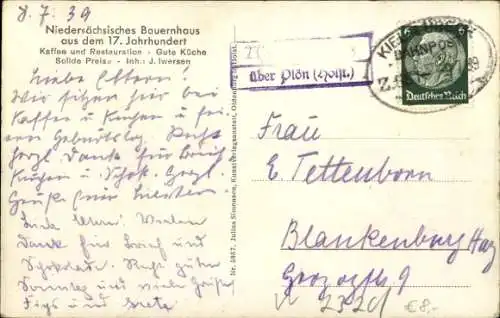 8.7.39
Niedersächsisches Bauernhaus
aus dem 17. Jahrhundert
Kaffee und Restauration · Gute Küche
Solide Preise · Inh.: J. Iwersen
Liebe Eltern!
Wir sitzen hier bei
Kaffee u. Kuchen u. feiern
Geburtstag. Recht
herzl. Dank für Brief
Kuchen u. Schok. Herzl.
Grüße
Liebe Eltern! Vielen
Dank für Brief und
Schokolade. Recht guten
Sonntag und viele Grüße
und Grete
Nr. 5957. Julius Simonsen, Kunstverlagsanstalt, Oldenburg
über Plön (Holst.)
KIEL
BAHNPOST
6
6
Deutsches Reich
Frau
E. Tettenborn
Blankenburg Harz
9
€8,-